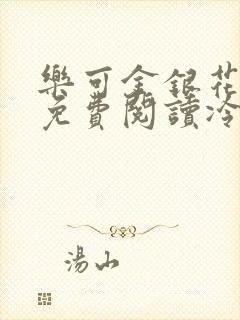 樂可金銀花
免費閱讀冷
湯山